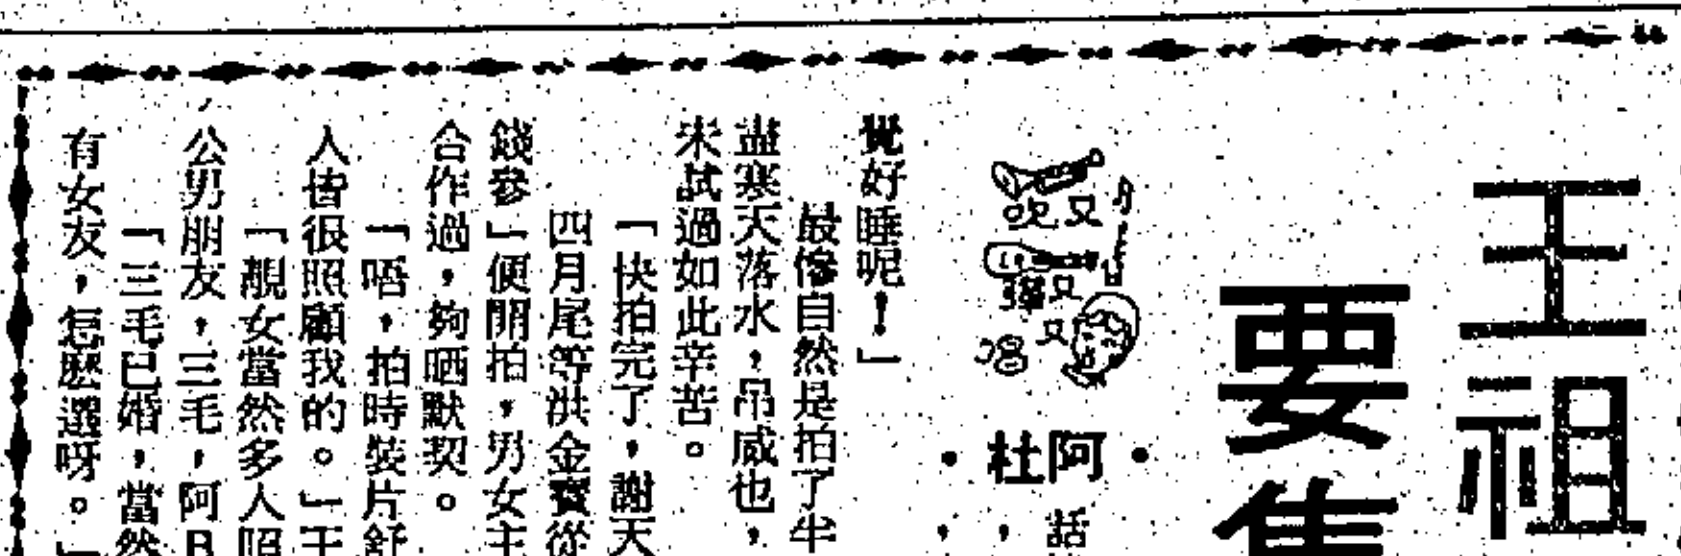 王祖
要隻
吹又
彈又
唱又
·阿杜·
話
覺好睡呢！」
最慘自然是拍了半
盡寒天落水，吊威也，
未試過如此辛苦。
「快拍完了，謝天
四月尾等洪金寶從
錢參」便開拍，男女主
合作過，夠晒默契。
「唔，拍時裝片舒
人皆很照顧我的。」王
「靚女當然多人照
公男朋友，三毛，阿B
「三毛已婚，當然
有女友，怎麽選呀。」